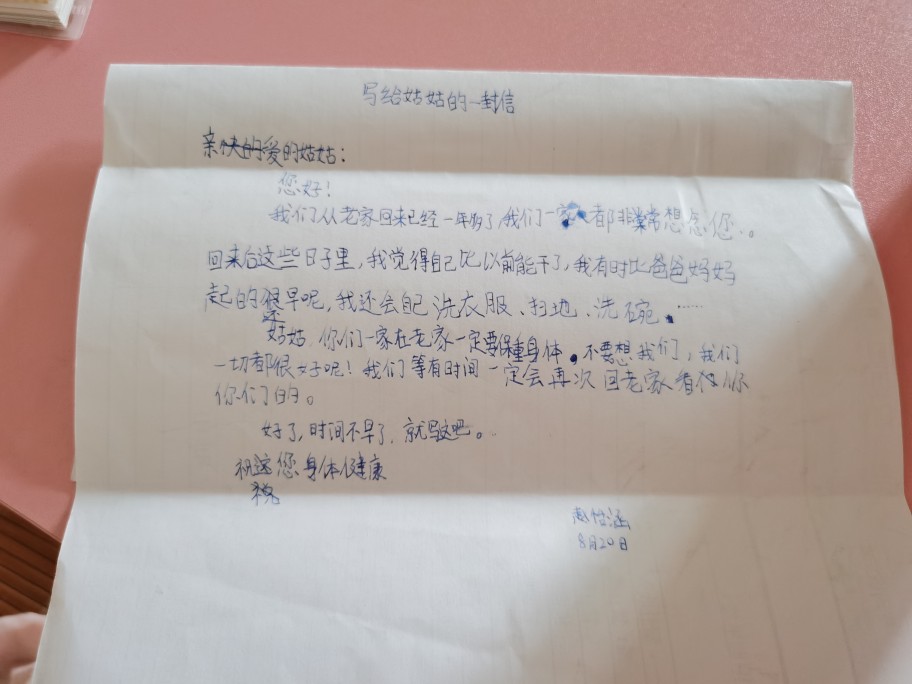 写给姑姑的一封信
亲爱的姑姑:
您好!
我们从老家回来已经一年多了,我们一家人都非常想念您。
回来后这些日子里,我觉得自己比以前能干了,我有时比爸爸妈妈
起的还早呢,我还会自己洗衣服、扫地、洗碗……
姑姑,你们一家在老家一定要保重身体。不要想我们,我们
一切都很好呢!我们等有时间一定会再次回老家看
你们的。
好了,时间不早了,就写这吧。
祝您身体健康
8月20日